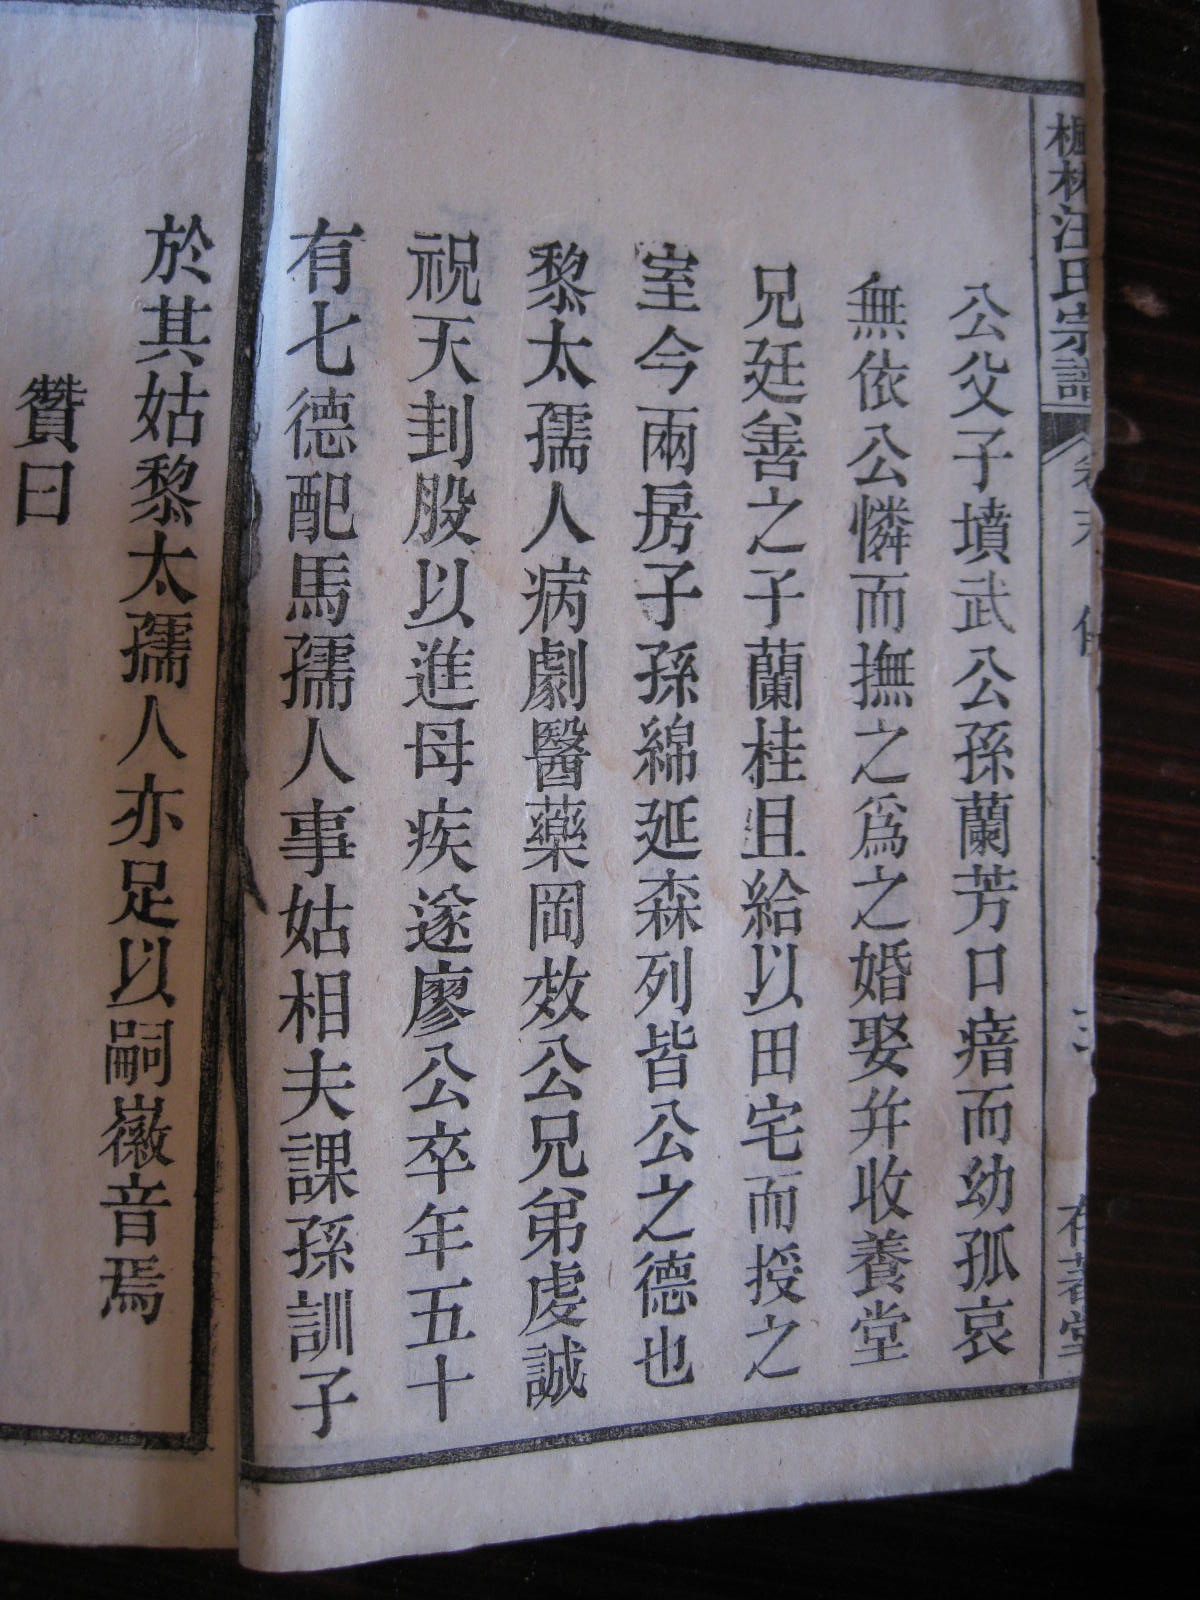 楓林汪氏宗譜 卷末 傳 存著堂
公父子墳武公孫蘭芳口瘖而幼孤哀
無依公憐而撫之爲之婚娶幷收養堂
兄廷善之子蘭桂且給以田宅而授之
室今兩房子孫綿延森列皆公之德也
黎太孺人病劇醫藥岡效公兄弟虔誠
祝天刲股以進母疾遂廖公卒年五十
有七德配馬孺人事姑相夫課孫訓子
於其姑黎太孺人亦足以嗣徽音焉
贊曰